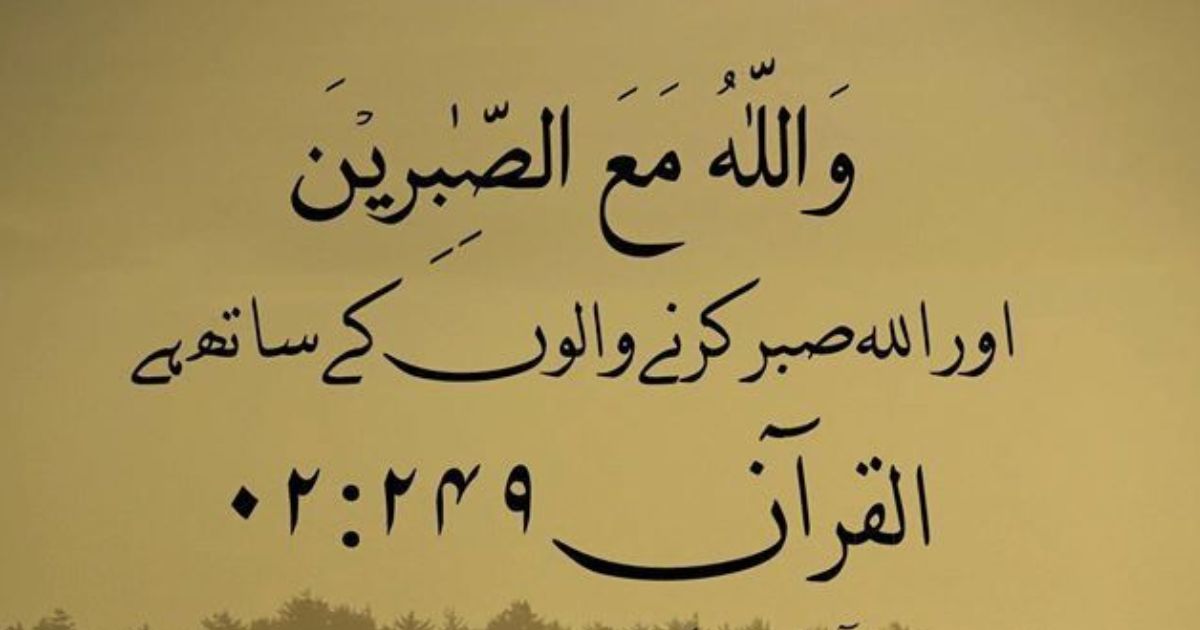 وَاللّٰهُ مَعَ الصّٰبِرِیْنَ
اور اللہ صبر کرنے والوں کے ساتھ ہے
القرآن ۰۲:۲۴۹